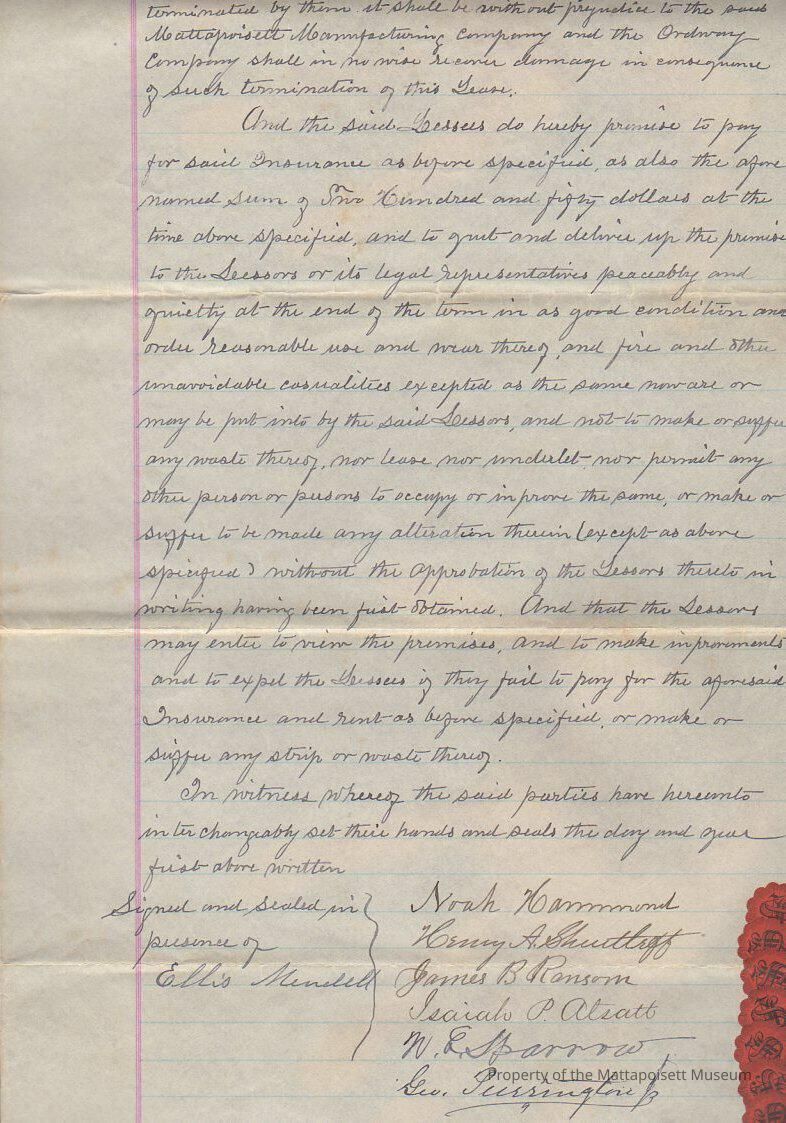 terminated by them it shall be without prejudice to the said
Mattapoisett Manufacturing Company and the Ordway
Company shall in no wise recover damage in consequence
of such termination of this Lease.
And the said Lessees do hereby promise to pay
for said Insurance as before specified, as also the afore
named sum of Two Hundred and fifty dollars at the
time above specified, and to quit and deliver up the premise
to the Leessors or its legal representatives peaceably and
quietly at the end of the term in as good condition and
order reasonable use and wear thereof, and fire and other
unavoidable casualities excepted as the same now are or
may be put into by the said Lessors, and not to make or suffer
any waste thereof, nor lease nor underlet nor permit any
other person or persons to occupy or improve the same, or make or
suffer to be made any alteration therein (except as above
specified) without the approbation of the Lessors thereto in
writing having been first obtained. And that the Lessors
may enter to view the premises, and to make improvements
and to expel the Lessees if they fail to pay for the aforesaid
Insurance and rent as before specified, or make or
suffer any strip or waste thereof.
In witness whereof the said parties have hereunto
interchangeably set their hands and seals the day and year
first above written
Signed and sealed in
presence of
Ellis Mendell
Noah Hammond
Henry A. Shurtleff
James B Ransom
Isaiah P. Atsatt
W. E. Sparrow
Geo. Purrington Jr
Property of the Mattapoisett Museum